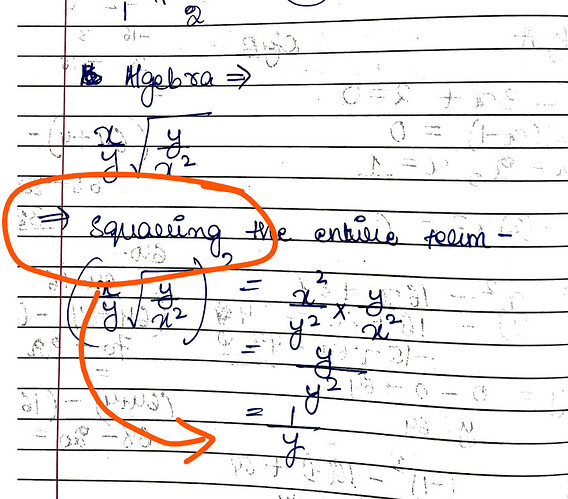 1 2
Algebra ⇒
x/y √(y/x²)
⇒ Squaring the entire term -
(x/y √(y/x²))² = x²/y² × y/x²
= y/y²
= 1/y